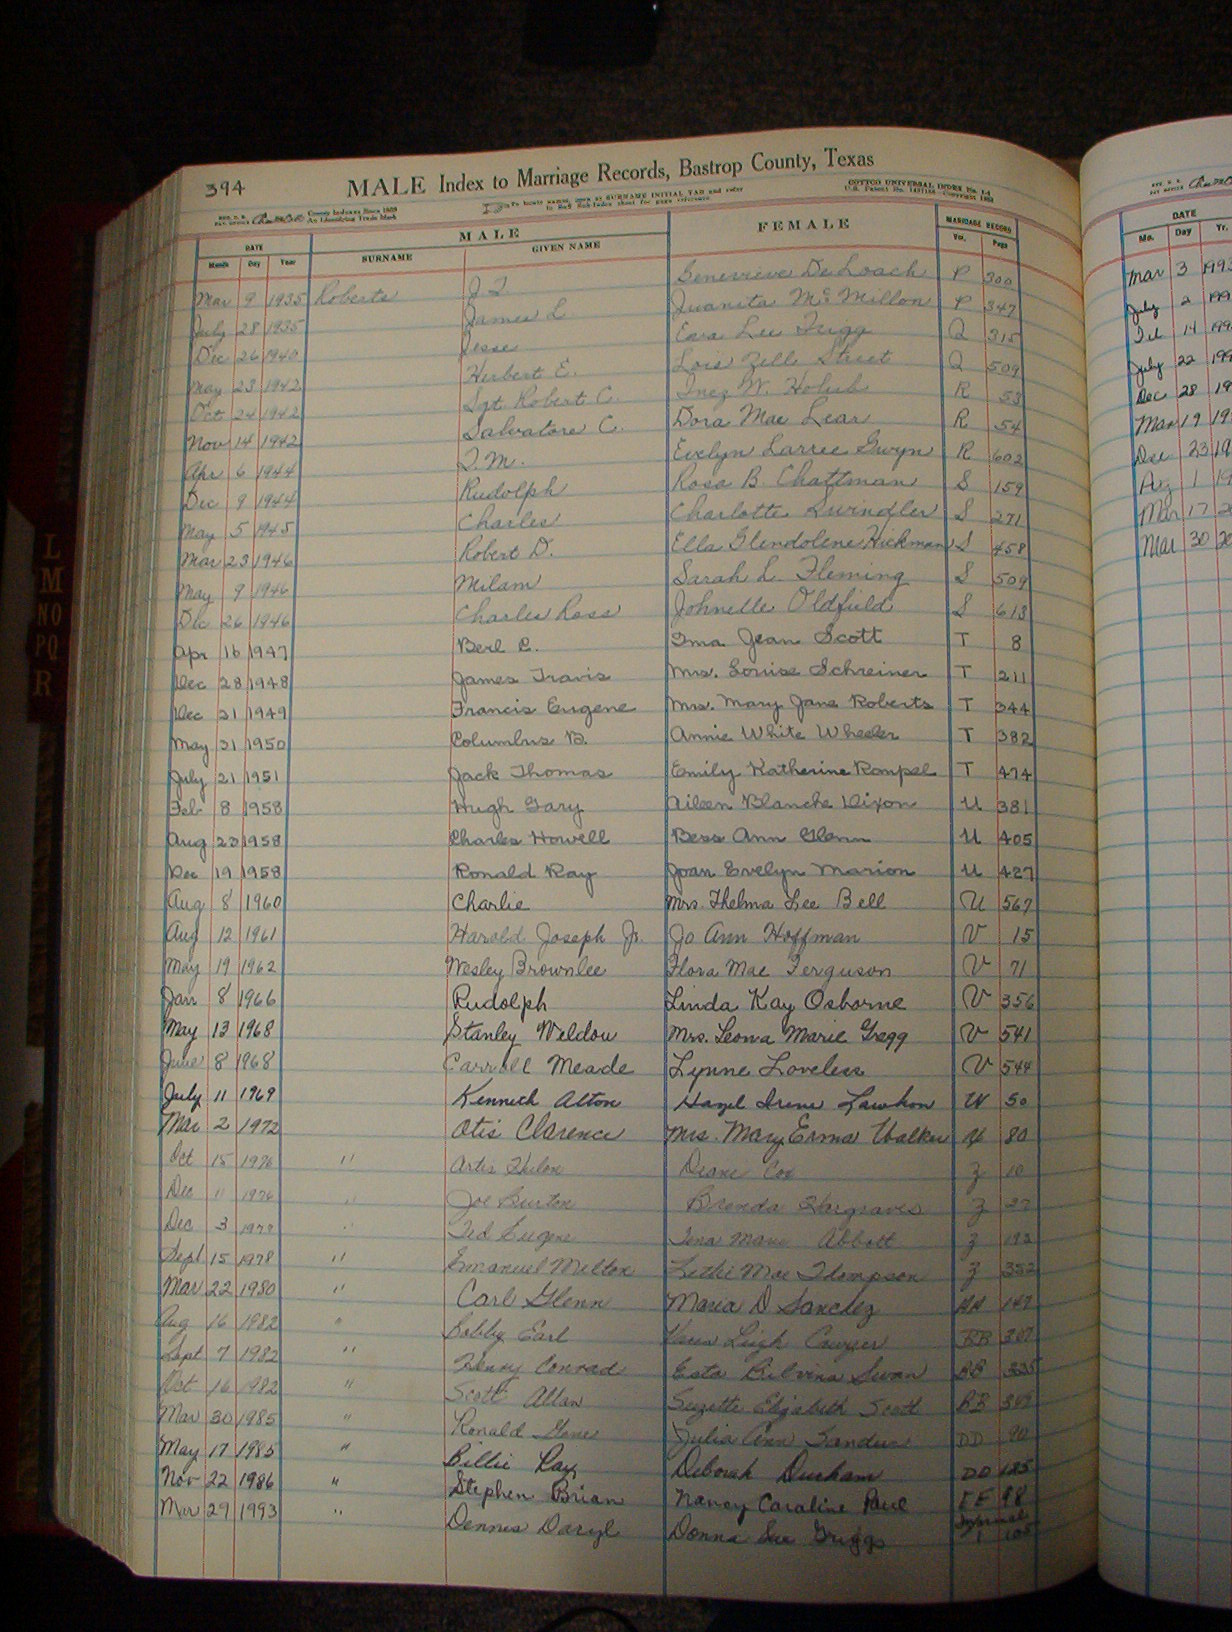 394
MALE Index to Marriage Records, Bastrop County, Texas
To locate names, open at SURNAME INITIAL TAB and refer
COTTCO UNIVERSAL INDEX No. 1-4
County Indexes Since 1888
An Identifying Trade Mark
DATE MALE FEMALE MARRIAGE RECORD
Month Day Year SURNAME GIVEN NAME Vol. Page
Mar 9 1935 Roberts J T Genevieve DeLoach P 300
July 28 1935 James L Juanita McMillon P 347
Dec 26 1940 Jesse Eva Lee Trigg Q 315
May 23 1942 Herbert E. Lois Zell Street Q 509
Oct 24 1942 Sgt Robert C. Inez W. Holub R 53
Nov 14 1942 Salvatore C. Dora Mae Lear R 54
Apr 6 1944 T. M. Evelyn Larree Gwyn R 602
Dec 9 1944 Rudolph Rosa B. Chattman S 159
May 5 1945 Charles Charlotte Swindler S 271
Mar 23 1946 Robert D. Ella Glendolene Hickman S 458
May 9 1946 Milam Sarah L. Fleming S 509
Dec 26 1946 Charles Ross Johnelle Oldfield S 613
Apr 16 1947 Berl E. Ima Jean Scott T 8
Dec 28 1948 James Travis Mrs. Louise Schreiner T 211
Dec 31 1949 Francis Eugene Mrs. Mary Jane Roberts T 344
May 31 1950 Columbus B. Annie White Wheeler T 382
July 21 1951 Jack Thomas Emily Katherine Rompel T 474
Feb 8 1958 Hugh Gary Aileen Blanche Dixon U 381
Aug 23 1958 Charles Howell Bess Ann Glenn U 405
Dec 19 1958 Ronald Ray Joan Evelyn Marion U 427
Aug 8 1960 Charlie Mrs. Thelma Lee Bell U 567
Aug 12 1961 Harold Joseph Jr. Jo Ann Hoffman V 15
May 19 1962 Wesley Brownlee Flora Mae Ferguson V 71
Jan 8 1966 Rudolph Linda Kay Osborne V 356
May 13 1968 Stanley Weldon Mrs. Leona Marie Gregg V 541
June 8 1968 Carroll Meade Lynne Loveless V 544
July 11 1969 Kenneth Alton Hazel Irene Lawhon W 50
Mar 2 1972 Otis Clarence Mrs. Mary Erma Walker 80
Oct 15 1976 " Diane Cox Z 10
Dec 11 1976 " Joe Burton Brenda Hargraves Z 37
Dec 3 1977 " Ted Eugene Tena Marie Abbott Z 193
Sept 15 1978 " Emanuel Melton Lethe Mae Thompson Z 352
Mar 22 1980 " Carl Glenn Maria D Sanchez AA 147
Aug 16 1982 " Bobby Earl Leigh BB 307
Sept 7 1982 " Henry Conrad Esta Swan BB 335
Oct 16 1982 " Scott Allan Suzette Elizabeth Scott BB
Mar 30 1985 " Ronald Gene Julia Ann Sanders DD 90
May 17 1985 " Billie Ray Deborah Durham DD 125
Nov 22 1986 " Stephen Brian Nancy Caroline Paul EE 98
Mar 29 1993 " Dennis Daryl Donna Sue Griggs Informal 1 105
DATE
Mo. Day Yr.
Mar 3 1993
July 2 199
Feb 14 199
July 22 199
Dec 28 19
Mar 19 19
Dec 23 19
Aug 1 19
Mar 17 2
Mar 30 20
L
M
NO
PQ
R